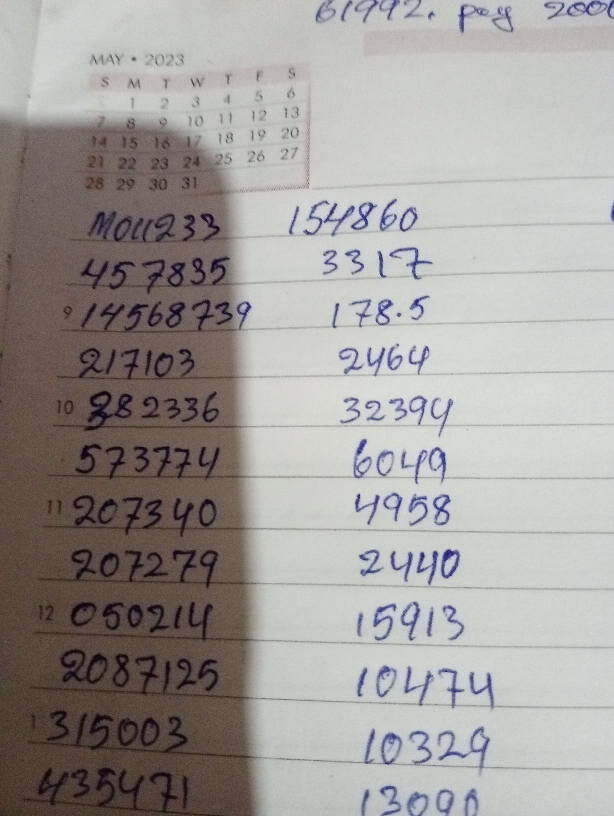 61992. pay 200
MAY • 2023
S M T W T F S
1 2 3 4 5 6
7 8 9 10 11 12 13
14 15 16 17 18 19 20
21 22 23 24 25 26 27
28 29 30 31
M011233 154860
457835 3317
9 14568739 178.5
217103 2464
10 382336 32394
573774 6049
11 207340 4958
207279 2440
12 050214 15913
2087125 10474
1 315003 10329
435471 13090